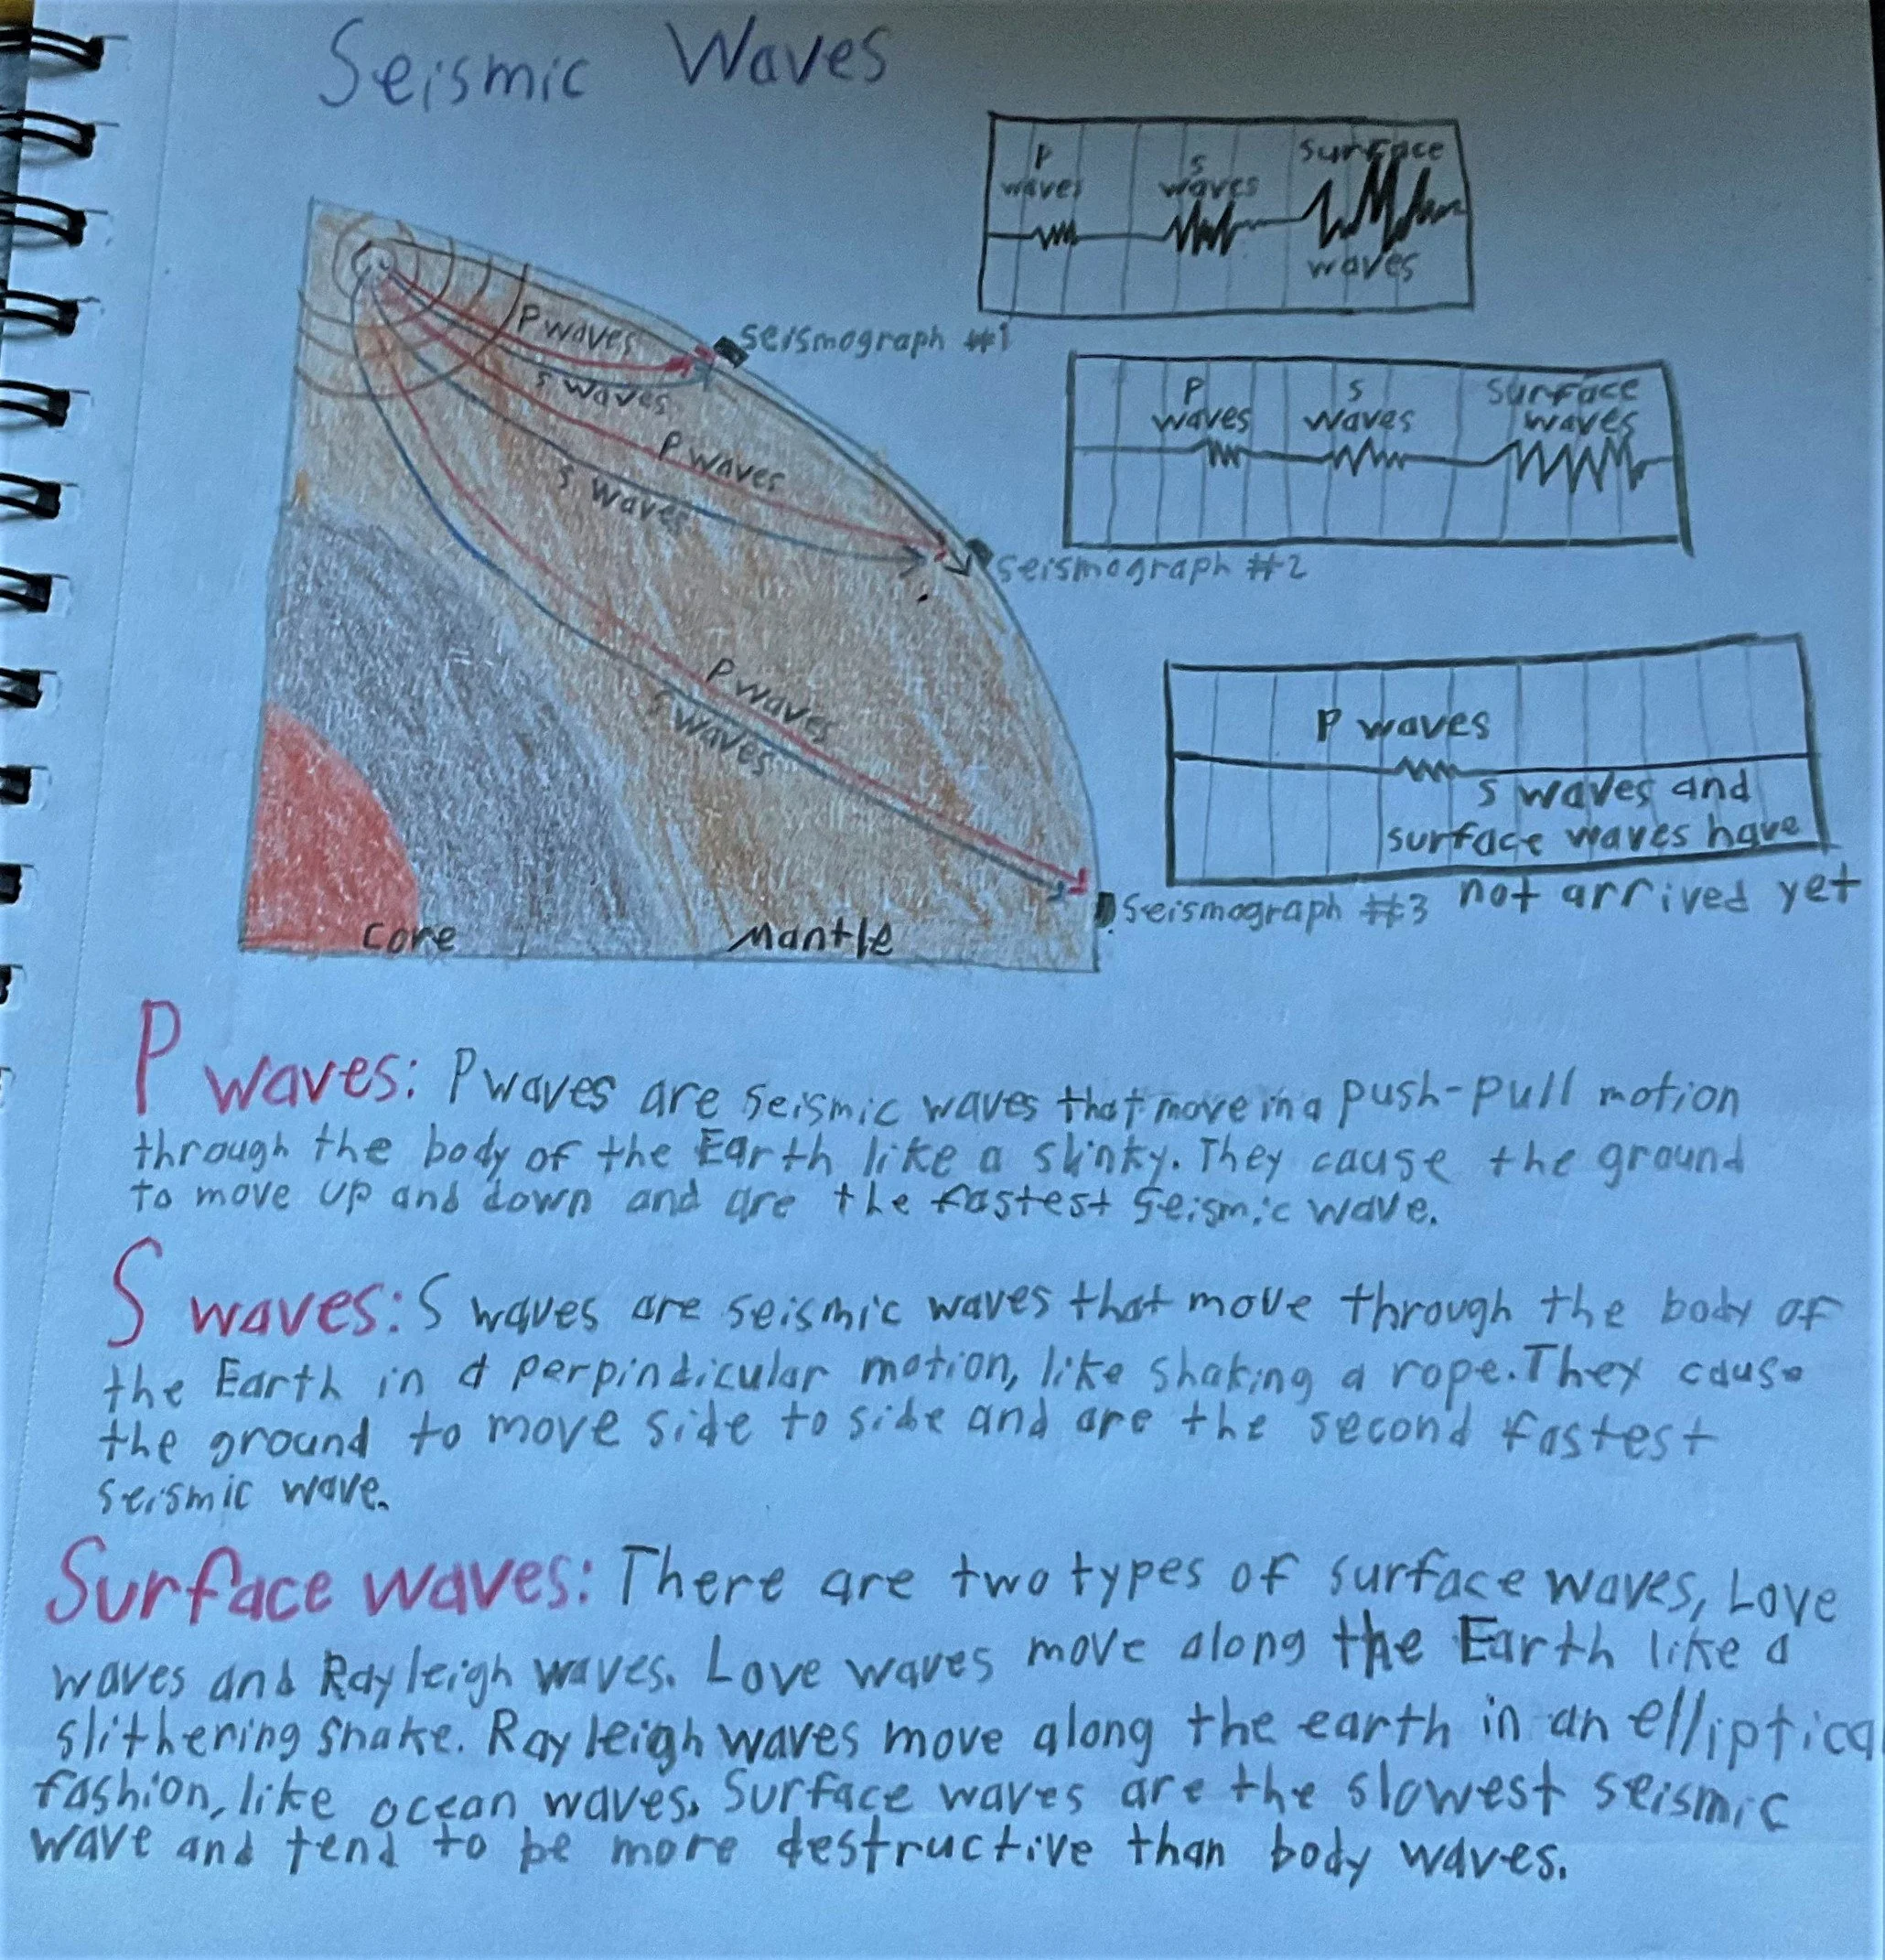 Seismic Waves
P
waves
S
waves
surface
waves
P waves
S waves
seismograph #1
P
waves
S
waves
surface
waves
P waves
S waves
seismograph #2
P waves
S waves and
surface waves have
not arrived yet
P waves
S waves
seismograph #3
Core
Mantle
P waves: P waves are seismic waves that move in a push-pull motion
through the body of the Earth like a slinky. They cause the ground
to move up and down and are the fastest seismic wave.
S waves: S waves are seismic waves that move through the body of
the Earth in a perpindicular motion, like shaking a rope. They cause
the ground to move side to side and are the second fastest
seismic wave.
Surface waves: There are two types of surface waves, Love
waves and Rayleigh waves. Love waves move along the Earth like a
slithering snake. Rayleigh waves move along the earth in an elliptical
fashion, like ocean waves. Surface waves are the slowest seismic
wave and tend to be more destructive than body waves.